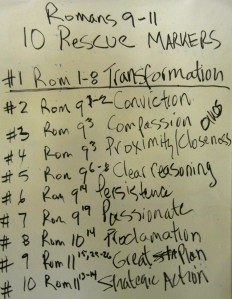 Romans 9-11
10 Rescue Markers
#1 Rom 1-8 Transformation
#2 Rom 9 1-2 Conviction
#3 Rom 9 3 Compassion
#4 Rom 9 3 Proximity/Closeness
#5 Rom 9 6-8 Clear reasoning
#6 Rom 9 14 Persistence
#7 Rom 9 19 Passionate
#8 Rom 10 14 Proclamation
#9 Rom 11 15, 25-26 Great Plan
#10 Rom 11 13-14 Strategic Action